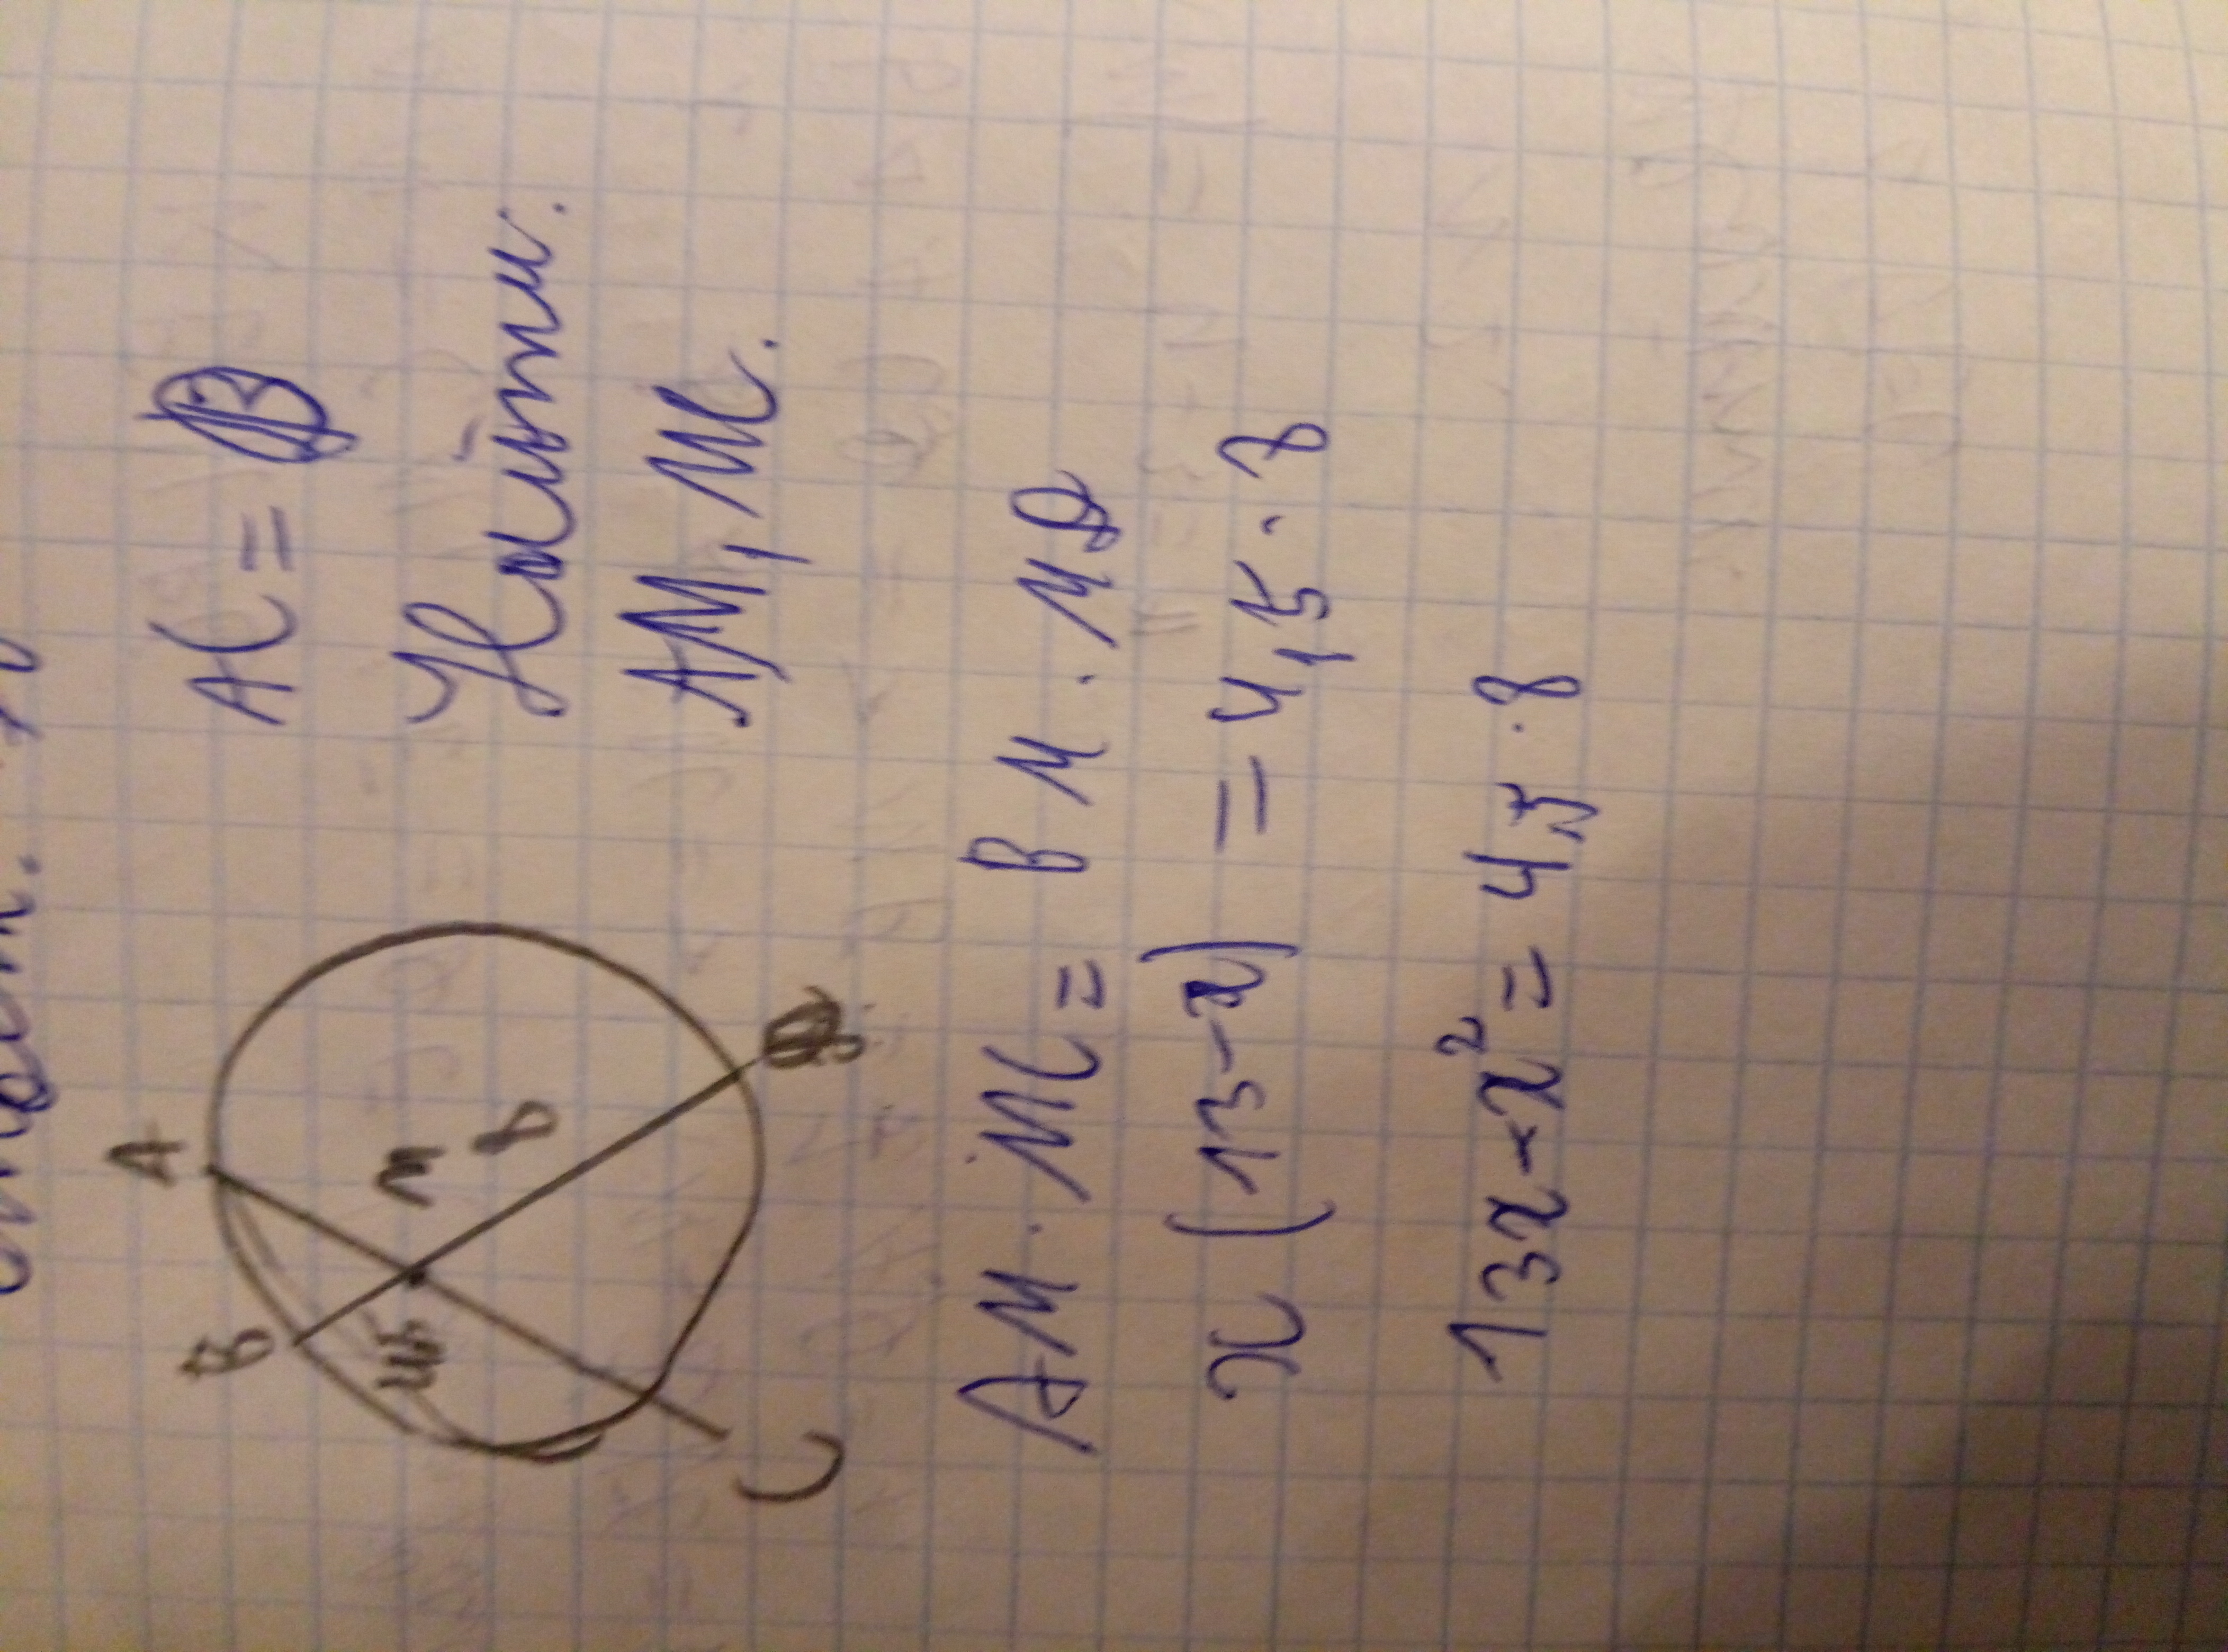 A
B
M
4,5
8
D
C
AC = 13
Найти.
AM, MC.
AM · MC = BM · MD
x (13-x) = 4,5 · 8
13x - x² = 4,5 · 8